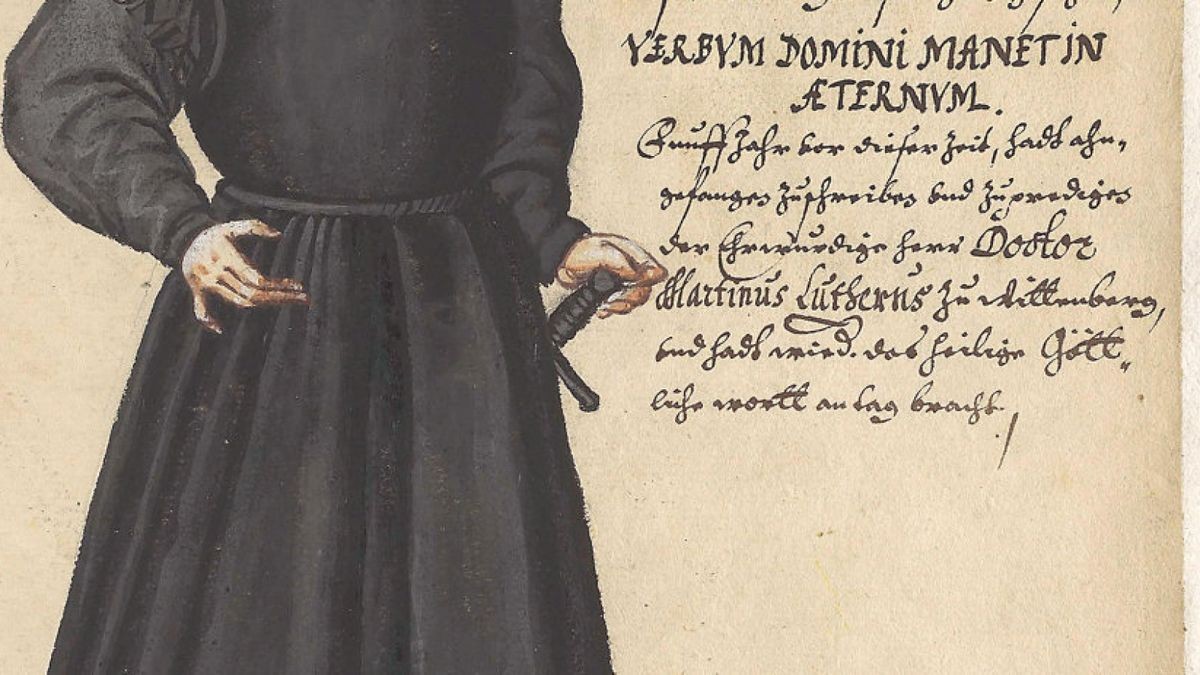 VERBVM DOMINI MANET IN
ÆTERNVM.
Fünff Jahr vor dieser Zeit, hadt ahn-
gefangen zuschreiben vnd zu predigen
der Ehrwurdige herr Doctor
Martinus Lutherus zu Wittenberg,
vnd hadt wied. das heilige Gött-
liche wortt an tag bracht.